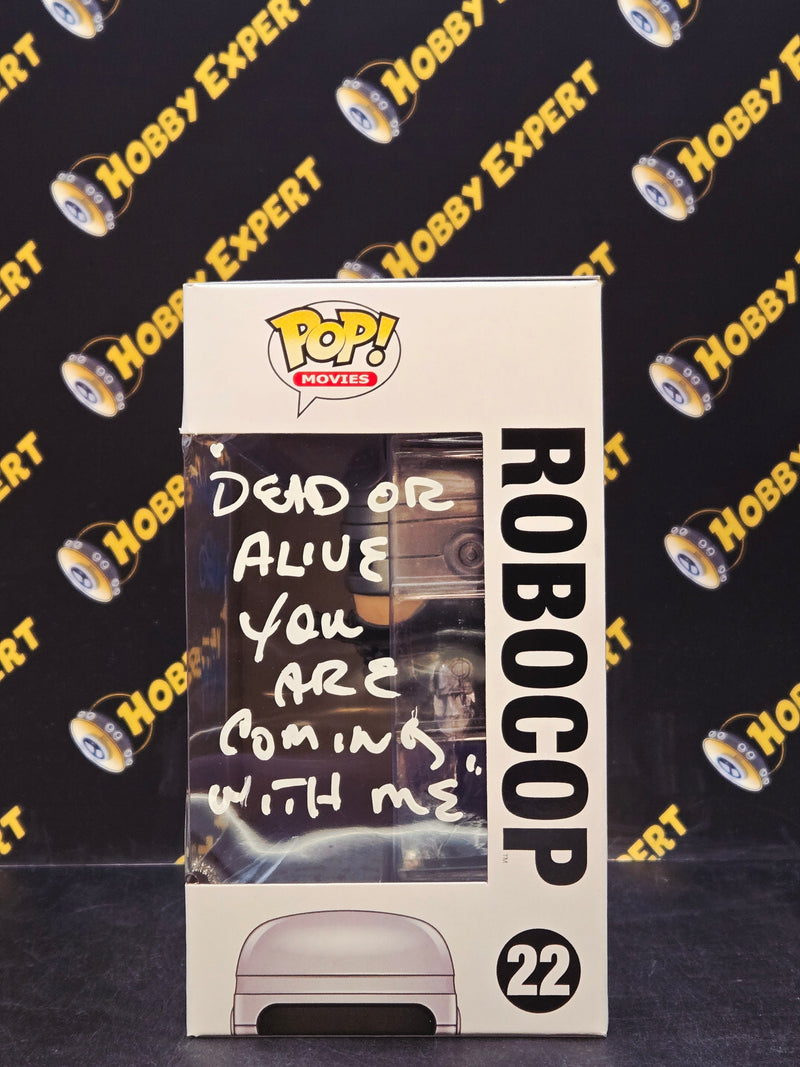 HOBBY EXPERT
HOBBY EXPERT
HOBBY EXPERT
HOBBY EXPERT
HOBBY EXPERT
POP!
MOVIES
"DEAD OR
ALIVE
YOU
ARE
COMING
WITH ME"
ROBOCOP
TM
22